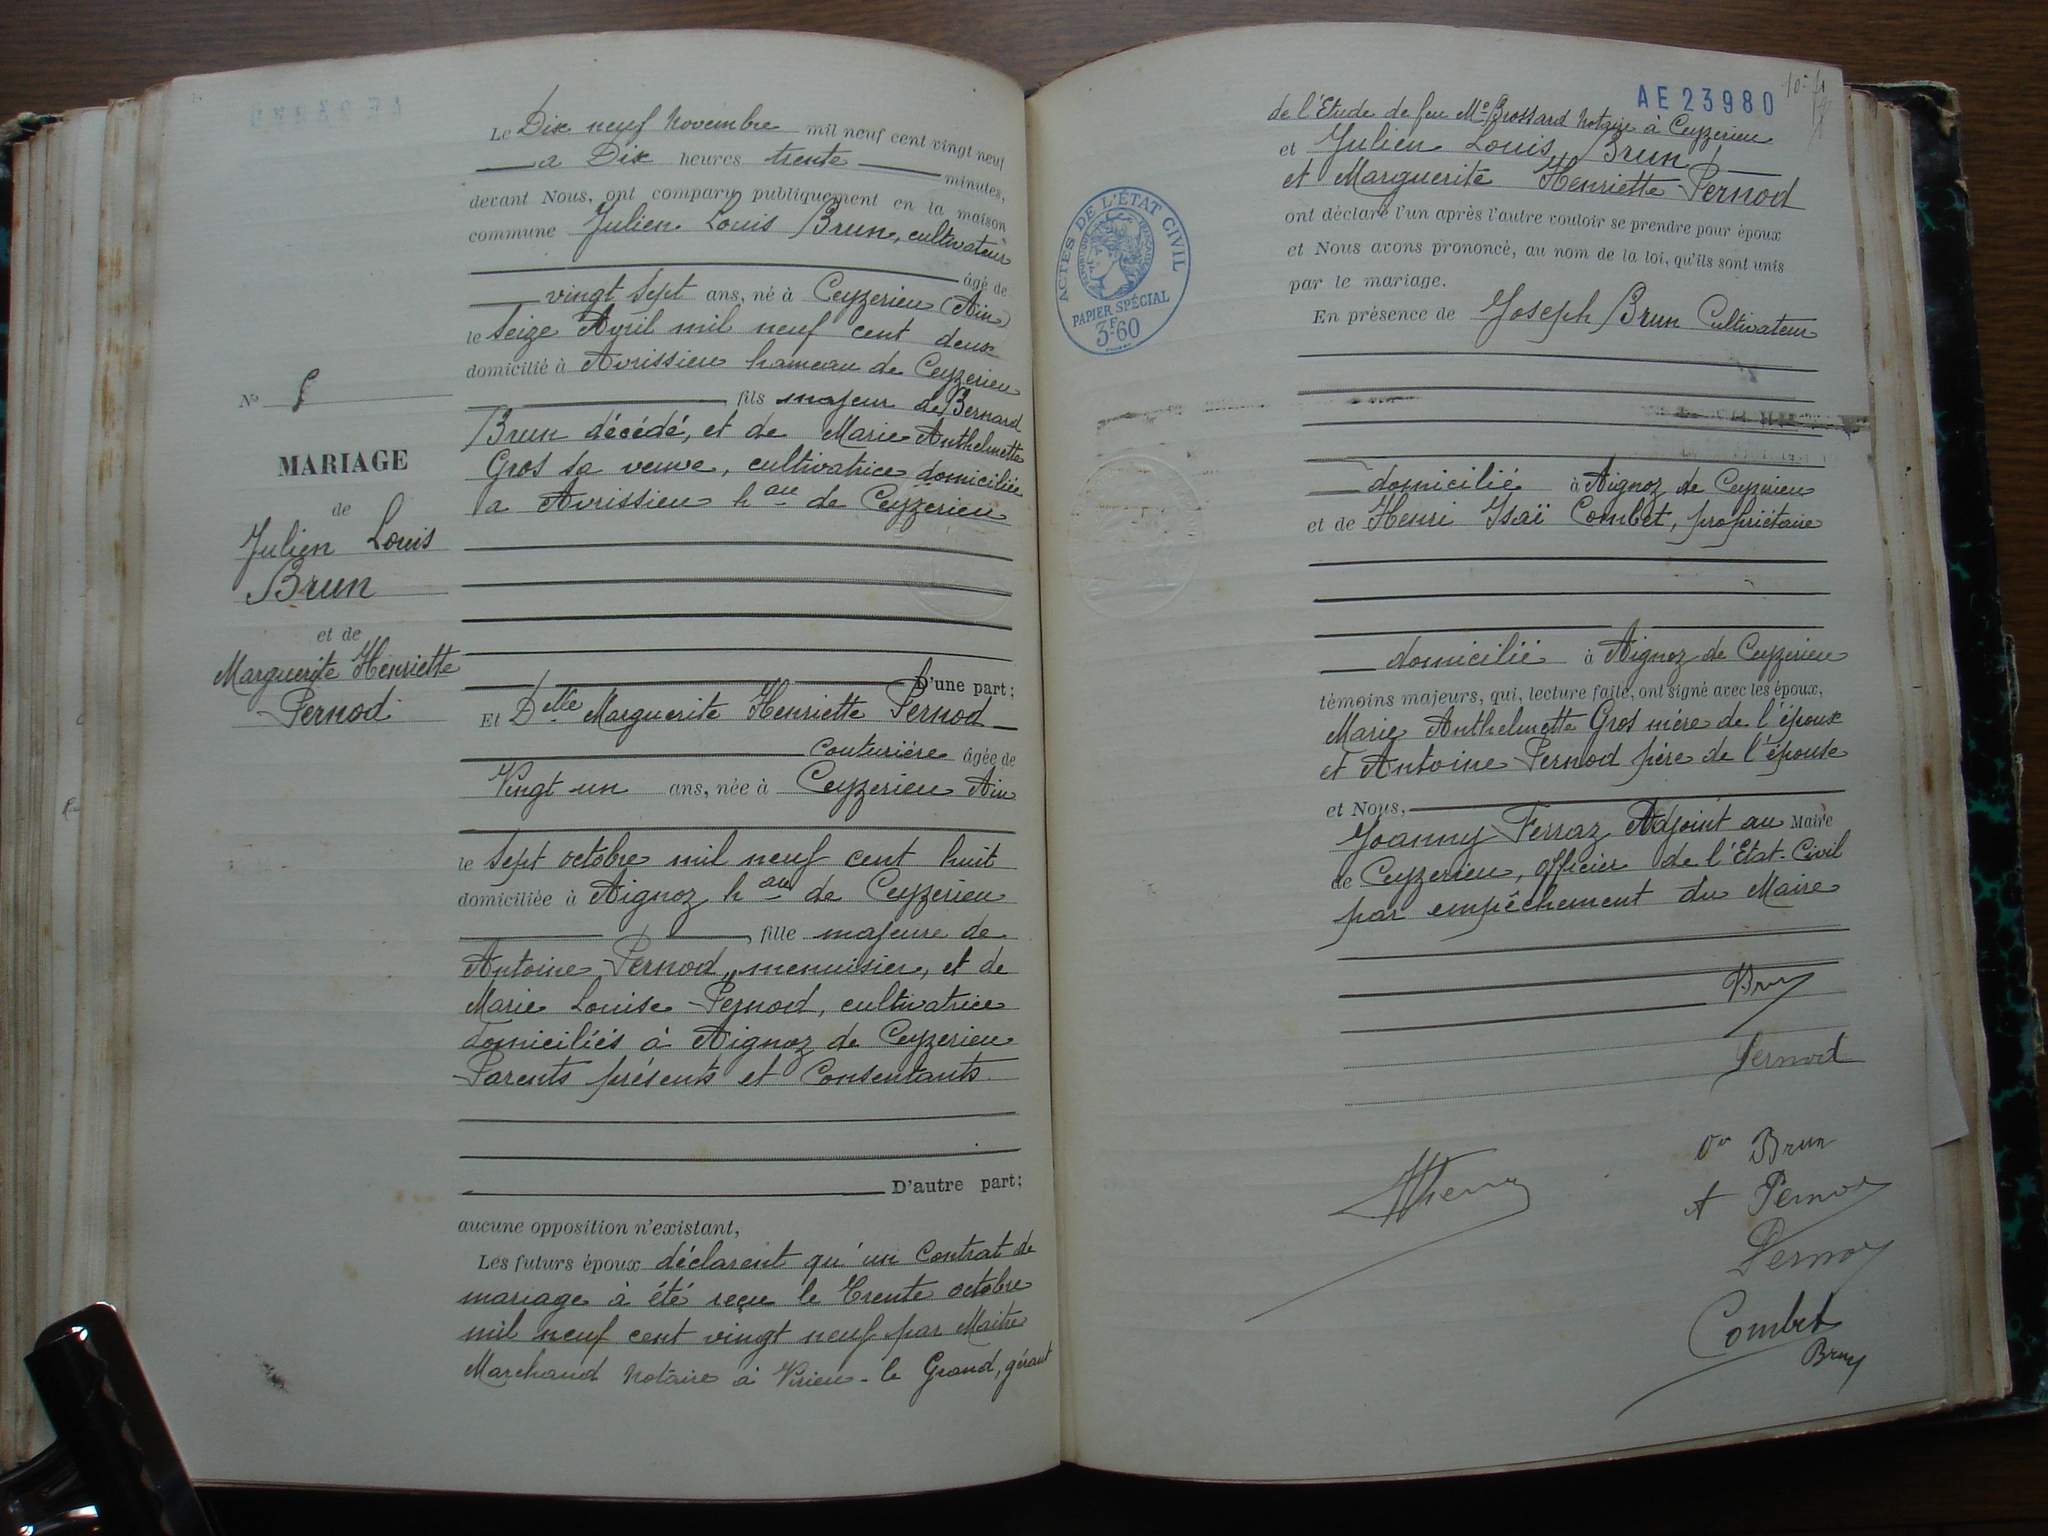 Le Dix neuf Novembre mil neuf cent vingt neuf
a Dix heures trente minutes,
devant Nous, ont comparu publiquement en la maison
commune Julien Louis Brun, cultivateur
âgé de
vingt sept ans, né à Ceyzerieu (Ain)
le Seize Avril mil neuf cent deux
domicilié à Avrissieu hameau de Ceyzerieu
fils majeur de Bernard
Brun décédé, et de Marie Anthelmette
Gros sa veuve, cultivatrice domiciliée
a Avrissieu hau de Ceyzerieu
D'une part;
Et Delle Marguerite Henriette Pernod
couturière âgée de
Vingt un ans, née à Ceyzerieu Ain
le Sept octobre mil neuf cent huit
domiciliée à Aignoz hau de Ceyzerieu
fille majeure de
Antoine Pernod, menuisier, et de
Marie Louise Pernod, cultivatrice
domiciliés à Aignoz de Ceyzerieu
Parents présents et Consentants
D'autre part;
aucune opposition n'existant,
Les futurs époux déclarent qu'un Contrat de
mariage à été reçu le trente octobre
mil neuf cent vingt neuf par Maitre
Marchand Notaire à Virieu-le Grand, gérant
No
MARIAGE
de
Julien Louis
Brun
et de
Marguerite Henriette
Pernod
AE 23980
de l'Etude de feu Me Brossard Notaire à Ceyzerieu
et Julien Louis Brun
et Marguerite Henriette Pernod
ont déclaré l'un après l'autre vouloir se prendre pour époux
et Nous avons prononcé, au nom de la loi, qu'ils sont unis
par le mariage.
En présence de Joseph Brun Cultivateur
domicilié à Aignoz de Ceyzerieu
et de Henri Isaï Combet, propriétaire
domicilié à Aignoz de Ceyzerieu
témoins majeurs, qui, lecture faite, ont signé avec les époux,
Marie Anthelmette Gros mère de l'époux
et Antoine Pernod père de l'épouse
et Nous,
Joanny Ferraz Adjoint au Maire
de Ceyzerieu, officier de l'Etat-Civil
par empêchement du Maire
Brun
Pernod
Vve Brun
A Pernod
Pernod
Combet
Brun
ACTES DE L'ÉTAT CIVIL
RÉPUBLIQUE FRANÇAISE
PAPIER SPÉCIAL
3F60